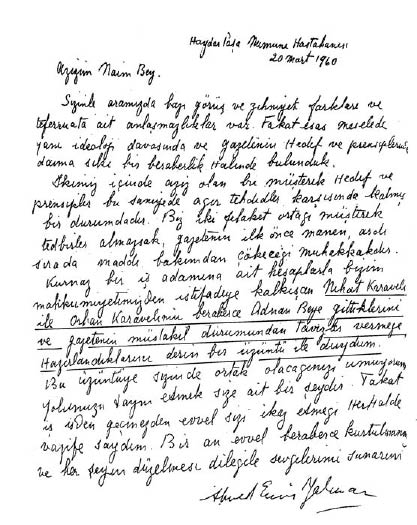 Haydar Paşa Numune Hastahanesi
20 Mart 1960
Azizim Naim Bey.
Sizinle aramızda bazı görüş ve zihniyet farkları ve
teferruata ait anlaşmazlıklar var. Fakat esas meselede
yani ideoloji davasında ve gazetenin Hedef ve prensiplerinde
daima sıkı bir beraberlik halinde bulunduk.
İkimiz için de aziz olan bu müşterek Hedef ve
prensipler bu saniyede ağır tehditler karşısında kalmış
bir durumdadır. Biz iki felaket ortağı müşterek
tedbirler almazsak, gazetenin ilk önce manen, ardı
sırada maddi bakımdan çökeceği muhakkakdır.
Kurnaz bir iş adamına ait hesaplarla bizim
mahkumiyetimizden istifadeye kalkışan Nihat Karaveli
ile Orhan Karavelinin beraberce Adnan Beye gittiklerini
ve gazetenin müstakil durumundan tavizler vermege
Hazırlandıklarını derin bir üzüntü ile duydum.
Bu üzüntüye sizin de ortak olacağınızı umuyorum
Yolunuzu tayin etmek size ait bir şeydir. Fakat
iş işden geçmeden evvel sizi ikaz etmeği Herhalde
vazife saydım. Bir an evvel beraberce kurtulmamız
ve her şeyin düzelmesi dileğile sevgilerimi sunarım
Ahmed Emin Yalman